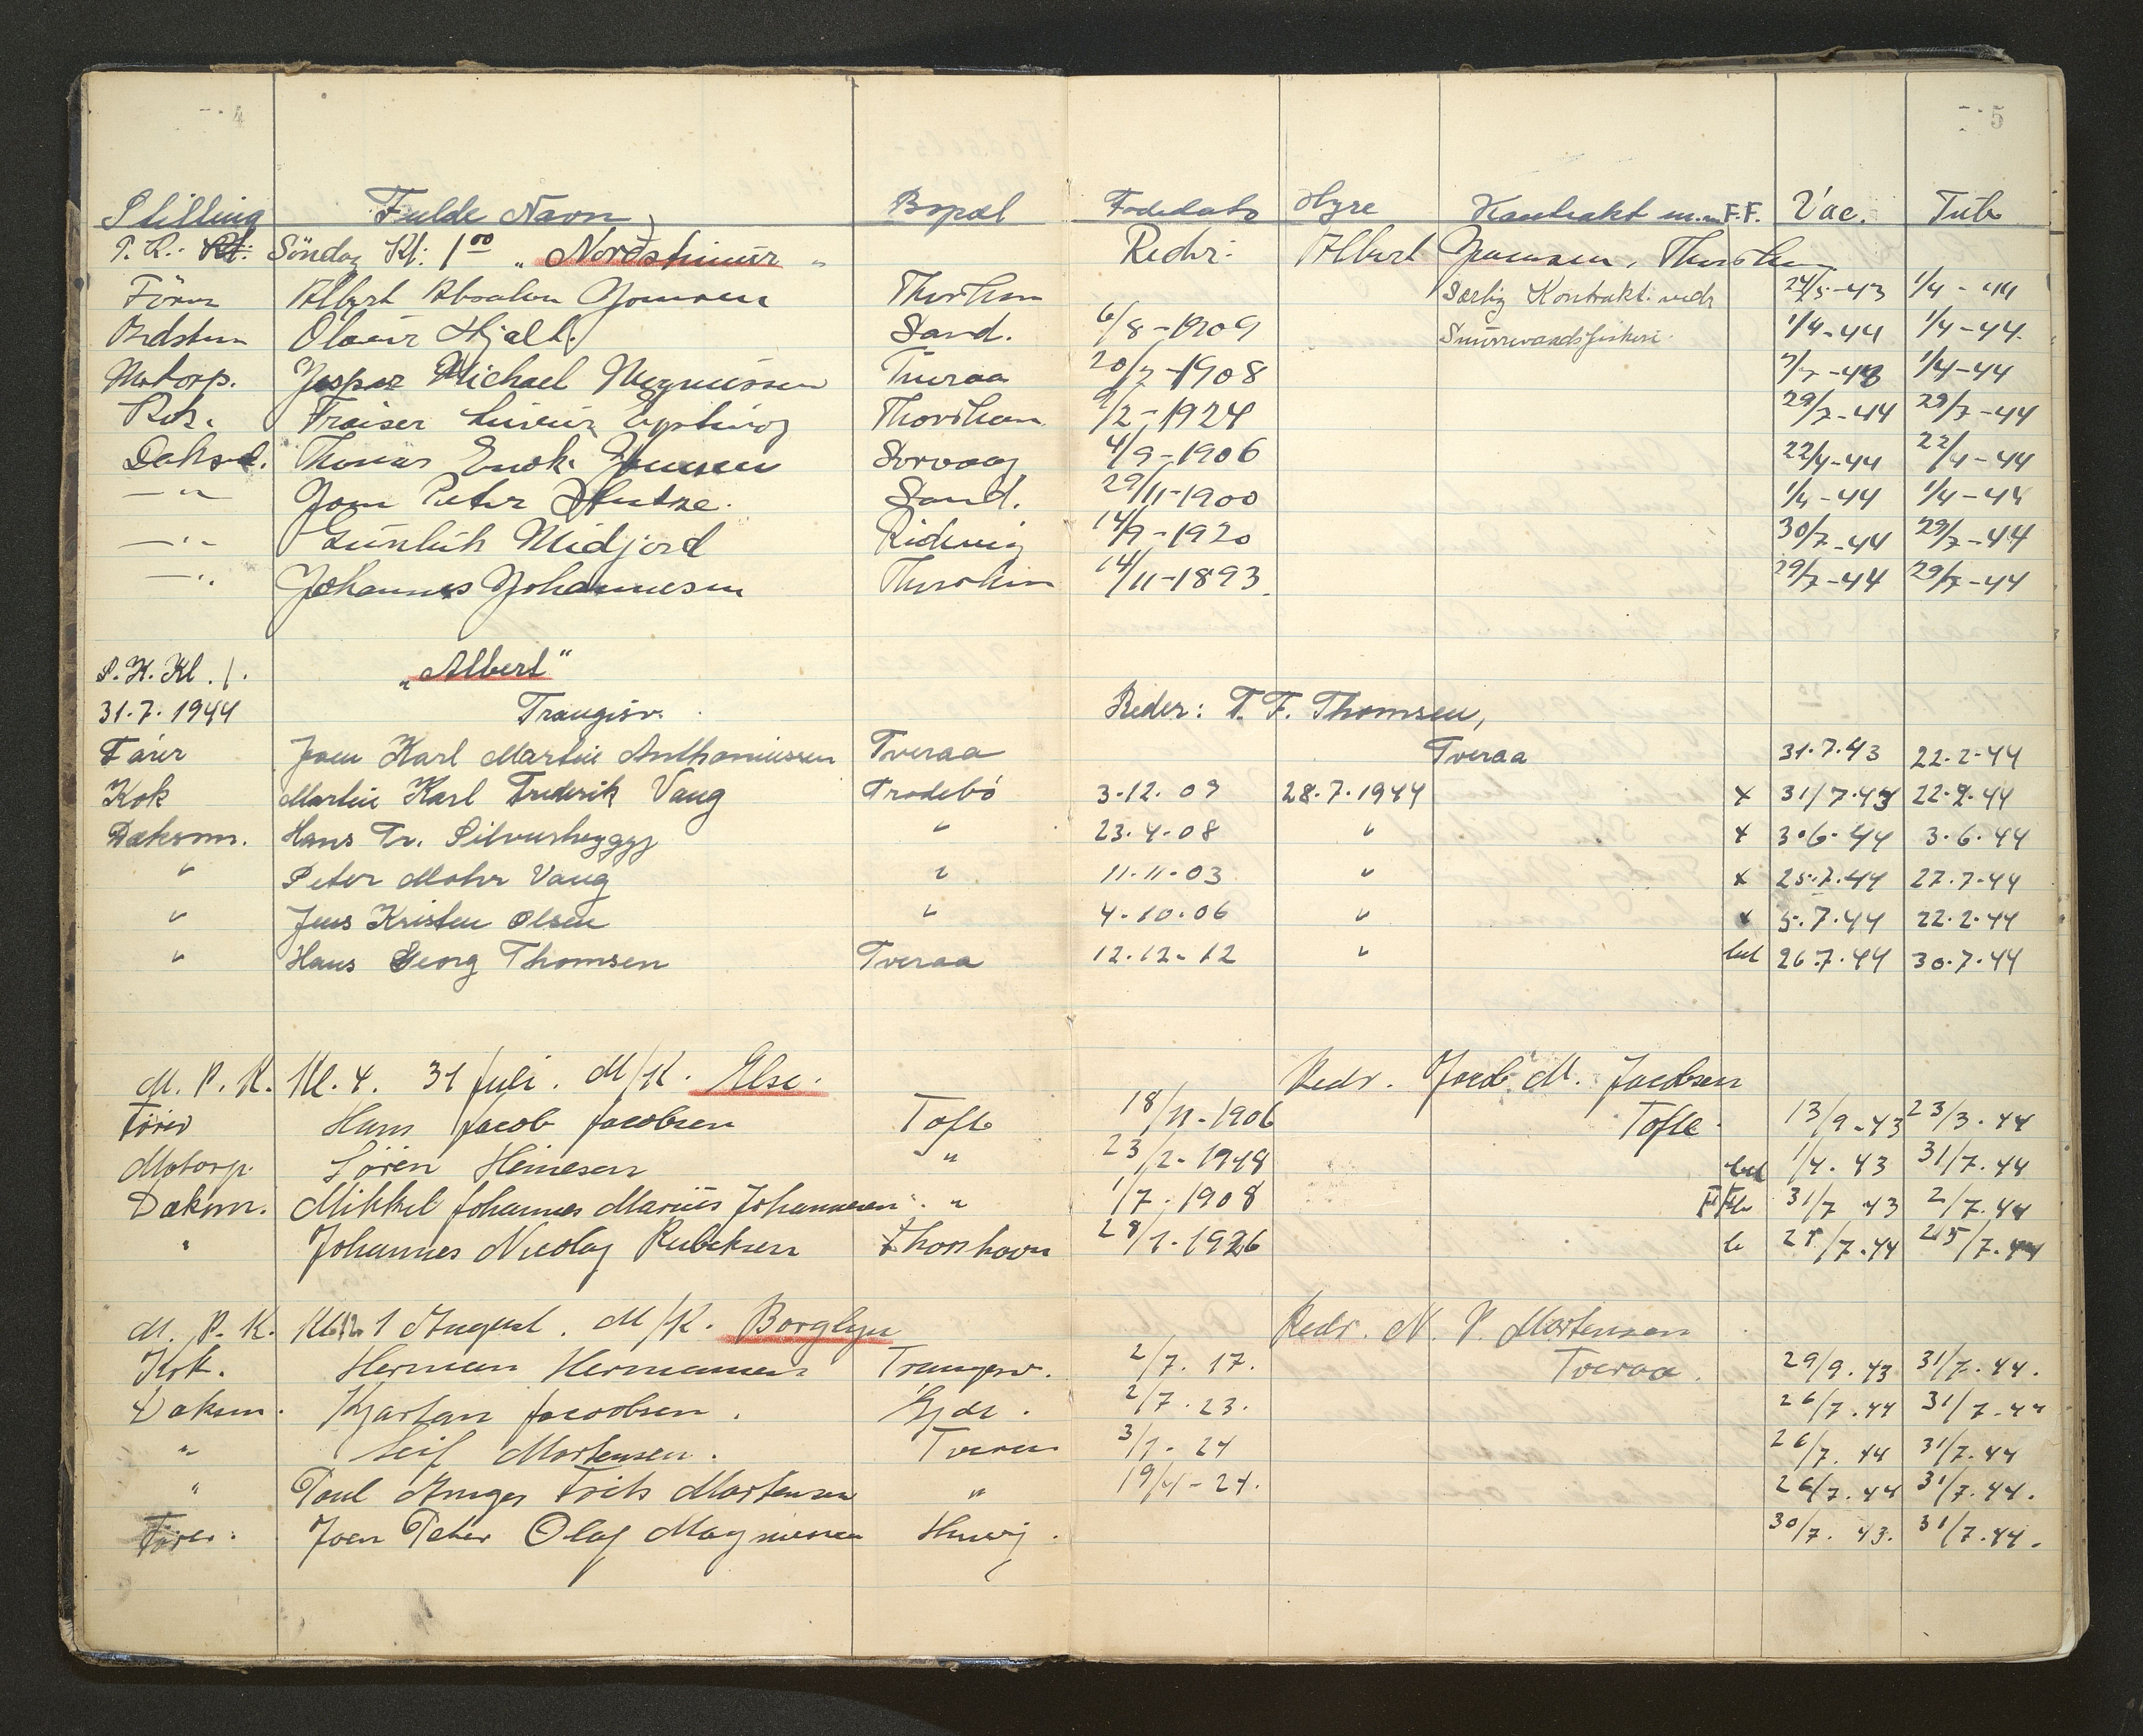 4 5
Stilling Fulde Navn Bopæl Fødedato Hyre Kontrakt m.m. F.F. Vac. Tub.
P.K.: Söndag Kl: 1⁰⁰ „Nordstjernur" Reder: Albert Joensen, Thorshavn
Förer Albert Absalon Joensen Thorshavn Særlig Kontrakt vedr 24/5-43 1/4-44
Bedstm Olavur Hjalt. Sand. 6/8-1909 Snurrevaadsfiskeri. 1/4-44 1/4-44.
Motorp. Jaspar Michael Magnussen Tveraa 20/7-1908 1/4-44
Kok. Eysturoy Thorshavn 9/2-1924 29/7-44 29/7-44
Daksd. Thomas Enok Joensen Sorvaag 4/9-1906 22/4-44 22/4-44
—"— Joen Peter Sand. 29/11-1900 1/4-44 1/4-44
—"— Gunleik Midjord Ridevig 14/9-1920 30/7-44 29/7-44
—"— Johannes Johannesen Thorshavn 14/11-1893. 29/7-44 29/7-44
P.K. Kl. 1. „Albert"
31.7.1944 Trangisv. Reder: T. F. Thomsen,
Fører Joen Karl Martin Anthoniussen Tveraa Tveraa 31.7.43 22.2-44
Kok Martin Karl Frederik Vang Frodebö 3.12.09 28.7.1944 x 31/7.43 22.2.44
Dæksm. Hans Fr. " 23.4.08 " x 3.6.44 3.6.44
" Peter Mohr Vang " 11.11.03 " x 25.7.44 27.7-44
" Jens Kristen Olsen " 4.10.06 " x 5.7.44 22.2.44
" Hans Georg Thomsen Tveraa 12.12-12 " bet 26.7.44 30.7.44
M.P.K. Kl. 4. 31 Juli. M/K. Else. Redr. Jacob M. Jacobsen
Fører Hans Jacob Jacobsen Tofte 18/11-1906 Tofte. 13/9-43 23/3.44
Motorp. Sören Heinesen " 23/2-1918 bet 1/4.43 31/7.44
Daksm. Mikkel Johannes Marius Johannesen " 1/7.1908 31/7 43 2/7.44
" Johannes Nicolaj Rubeksen Thorshavn 28/1.1926 b 25/7.44 25/7.44
M.P.K. Kl. 12 1 August. M/K. Borglyn Redr. N. P. Mortensen
Kok. Herman Hermansen Trangisv. 2/7.17. Tveraa. 29/9.43 31/7.44.
Daksm. Kjartan Jacobsen. Gjde. 2/7.23. 26/7.44 31/7.44
" Leif Mortensen. Tveraa 3/1.24 26/7.44 31/7.44
" Poul Frits Mortensen " 19/4-24. 26/7.44 31/7.44.
Fører. Joen Peter Olaf Magnussen Hvalvig. 30/7.43. 31/7.44.